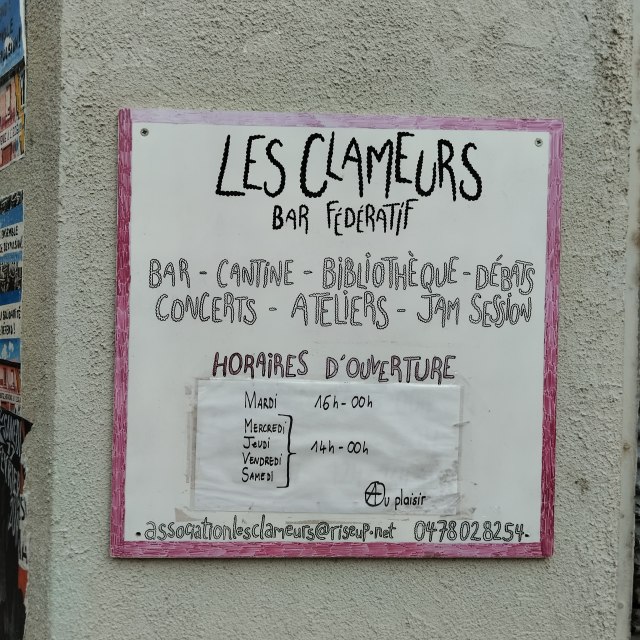 LES CLAMEURS
BAR FÉDÉRATIF
BAR - CANTINE - BIBLIOTHÈQUE - DÉBATS
CONCERTS - ATELIERS - JAM SESSION
HORAIRES D'OUVERTURE
MARDI 16h - 00h
MERCREDI
JEUDI
VENDREDI
SAMEDI
14h - 00h
Au plaisir
associationlesclameurs@riseup.net 0478028254